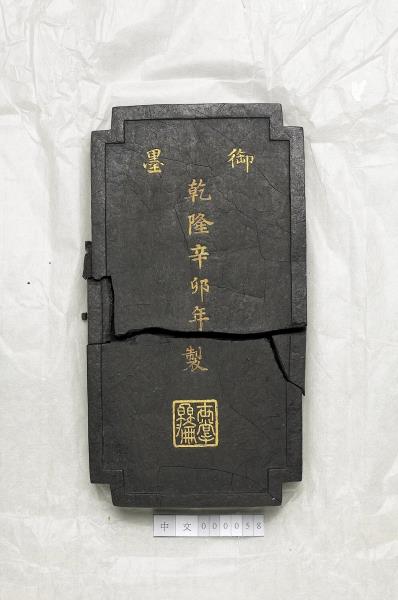 御墨
乾隆辛卯年製
世掌絲綸
中文 000058